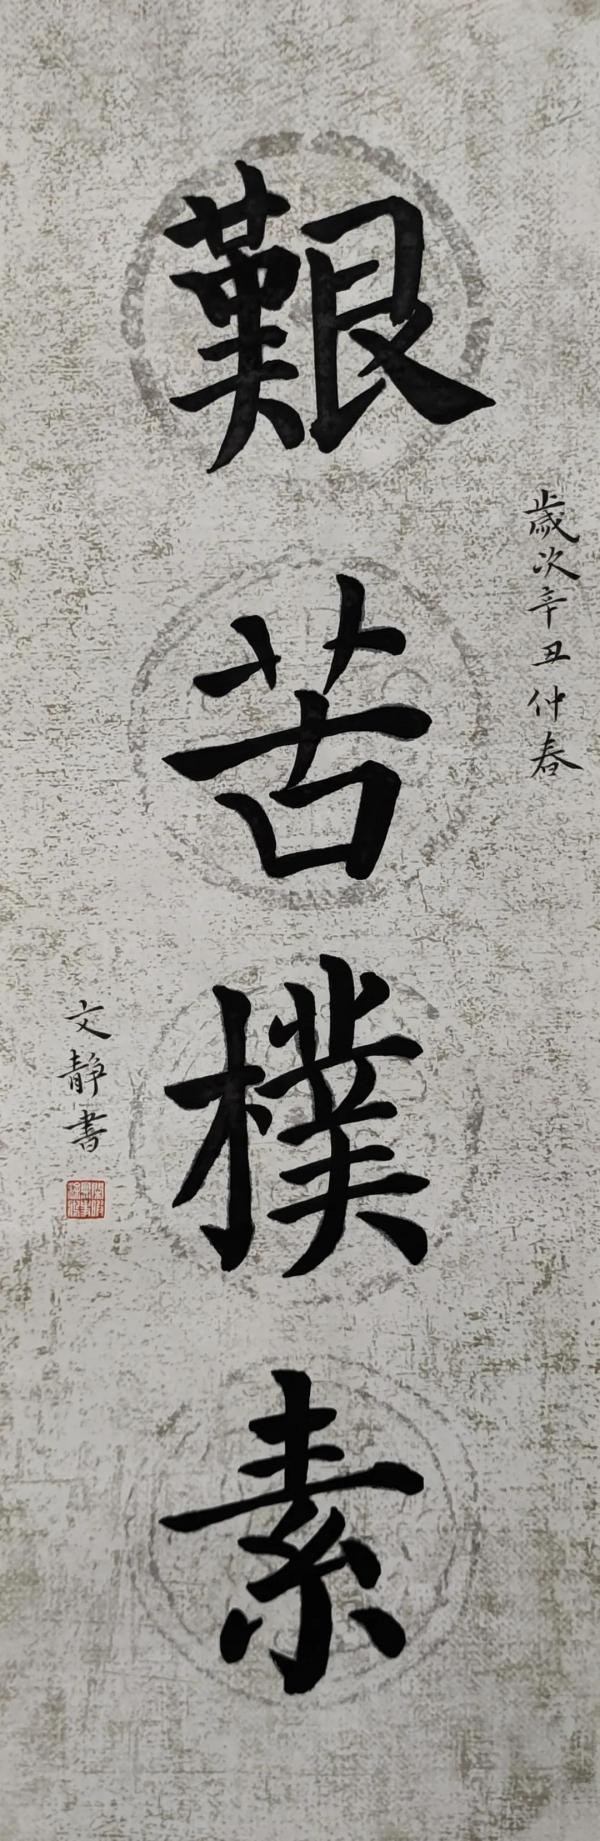 艱苦樸素
歲次辛丑仲春
文靜書